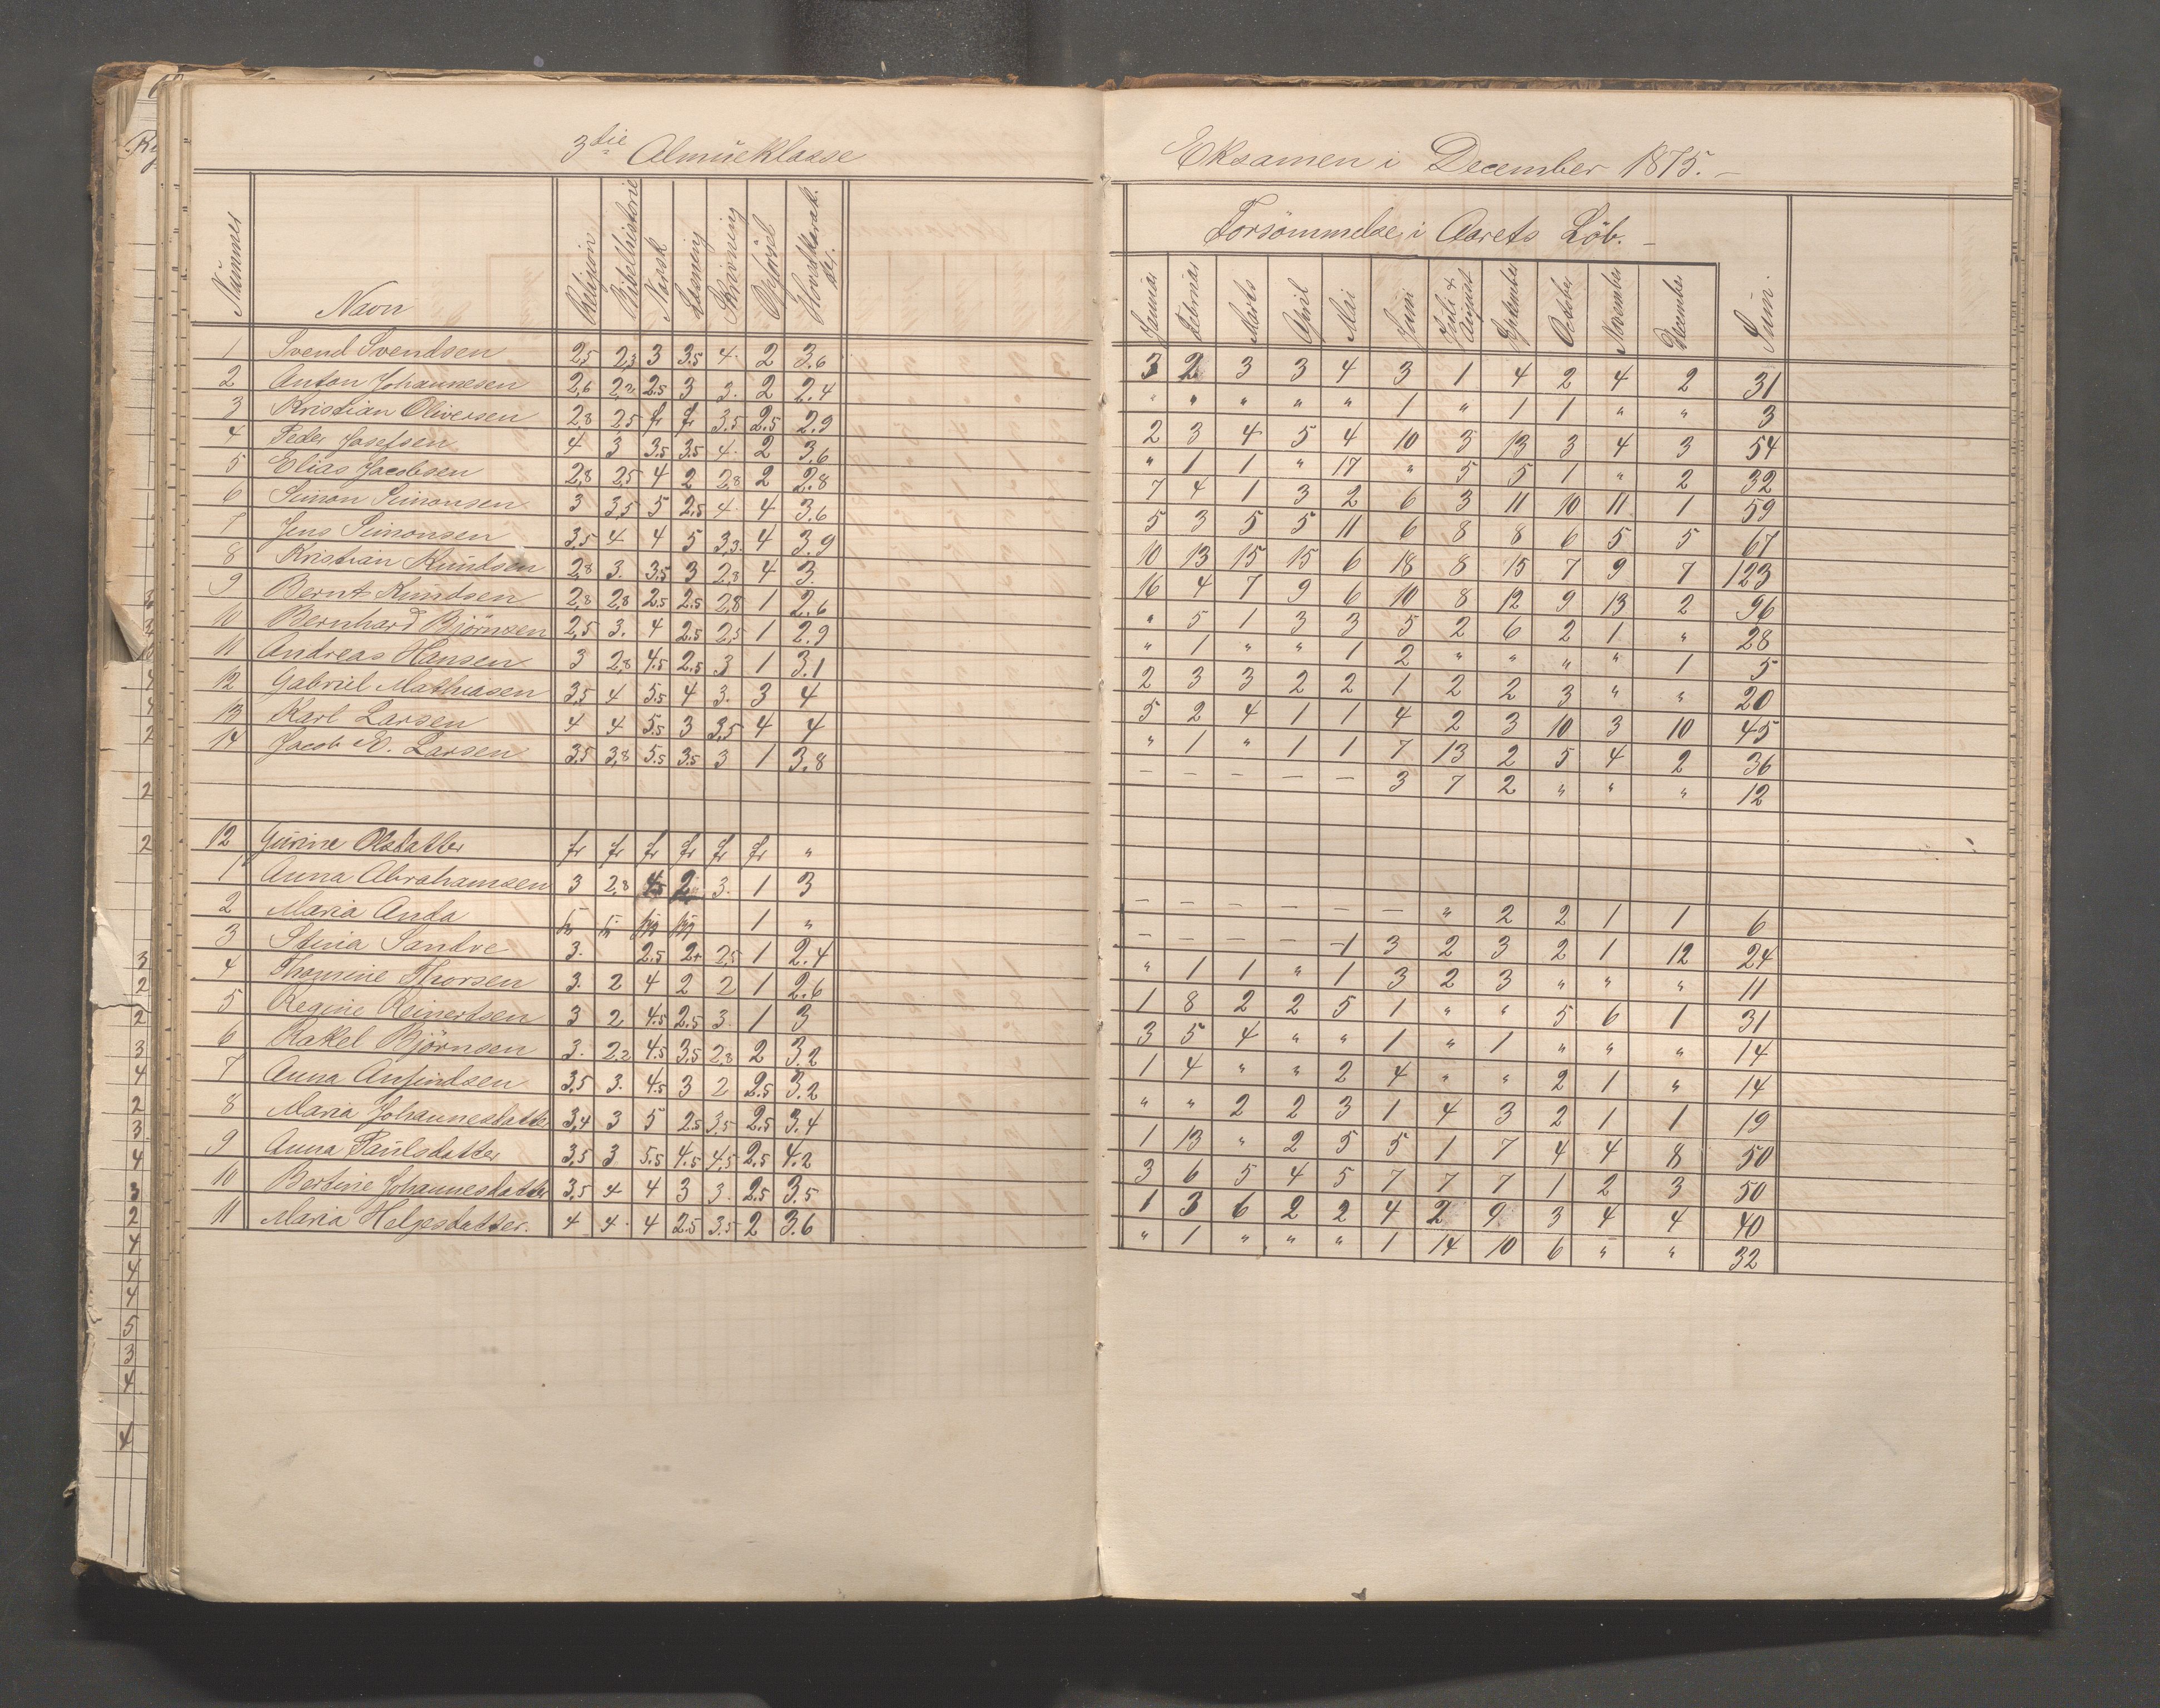 3die Almueklasse
Eksamen i December 1875. –
Nummer Navn Religion Bibelhistorie Norsk Læsning Skrivning Opførsel
Forsømmelse i Aarets Løb. –
Januar Februar Marts April Mai Juni Juli & August September October November December Sum
1 Svend Svendsen 2,5 2,3 3 3.5 4. 2 3.6 3 2 3 3 4 3 1 4 2 4 2 31
2 Anton Johannesen 2,6 2,2 2.5 3 3. 2 2.4 " " " " " 1 " 1 1 " " 3
3 Kristian Oliversen 2,8 2,5 fr fr 3,5 2.5 2.9 2 3 4 5 4 10 3 13 3 4 3 54
4 Peder Josefsen 4 3 3.5 3.5 4. 2 3.6 " 1 1 " 17 " 5 5 1 " 2 32
5 Elias Jacobsen 2,8 2,5 4 2 2,8 2 2.8 7 4 1 3 2 6 3 11 10 11 1 59
6 Simon Simonsen 3 3,5 5 2.5 4. 4 3.6 5 3 5 5 11 6 8 8 6 5 5 67
7 Jens Simonsen 3,5 4 4 5 3,3. 4 3.9 10 13 15 15 6 18 8 15 7 9 7 123
8 Kristian Knudsen 2,8 3. 3.5 3 2,8 4 3. 16 4 7 9 6 10 8 12 9 13 2 96
9 Bernt Knudsen 2,8 2,8 2.5 2.5 2,8 1 2.6 " 5 1 3 3 5 2 6 2 1 " 28
10 Bernhard Bjørnsen 2,5 3. 4 2.5 2,5 1 2.9 " 1 " " 1 2 " " " " 1 5
11 Andreas Hansen 3 2,8 4.5 2.5 3 1 3.1 2 3 3 2 2 1 2 2 3 " " 20
12 Gabriel Mathiasen 3,5 4 5.5 4 3. 3 4 5 2 4 1 1 4 2 3 10 3 10 45
13 Karl Larsen 4 4 5.5 3 3,5 4 4 " 1 " 1 1 7 13 2 5 4 2 36
14 Jacob E. Larsen 3,5 3,8 5.5 3.5 3 1 3.8 – – – – – 3 7 2 " " " 12
12 Gurine Olsdatter fr fr fr fr fr fr " – – – – – – " 2 2 1 1 6
1 Anna Abrahamsen 3 2,8 4.5 2 3. 1 3 – – – – 1 3 2 3 2 1 12 24
2 Maria Anda 1 " " 1 1 " 1 3 2 3 " " " 11
3 Stina Sandve 3. 2.5 2+ 2,5 1 2.4 1 8 2 2 5 1 " " 5 6 1 31
4 Thomine Thorsen 3. 2 4 2 2 1 2.6 3 5 4 " " 1 " 1 " " " 14
5 Regine Reinertsen 3 2 4.5 2.5 3. 1 3 1 4 " " 2 4 " " 2 1 " 14
6 Rakel Bjørnsen 3. 2,2 4.5 3.5 2,8 2 3.2 " " 2 2 3 1 4 3 2 1 1 19
7 Anna Anfindsen 3,5 3. 4.5 3 2 2.5 3.2 1 13 " 2 5 5 1 7 4 4 8 50
8 Maria Johannesdatter 3,4 3 5 2.5 3,5 2.5 3.4 3 6 5 4 5 7 7 7 1 2 3 50
9 Anna Paulsdatter 3,5 3 5.5 4.5 4,5 2.5 4.2 1 3 6 2 2 4 2 9 3 4 4 40
10 Bertine Johannesdatter 3,5 4 4 3 3. 2.5 3.5 " 1 " " " 1 14 10 6 " " 32
11 Maria Helgesdatter. 4 4. 4 2.5 3.5 2 3.6